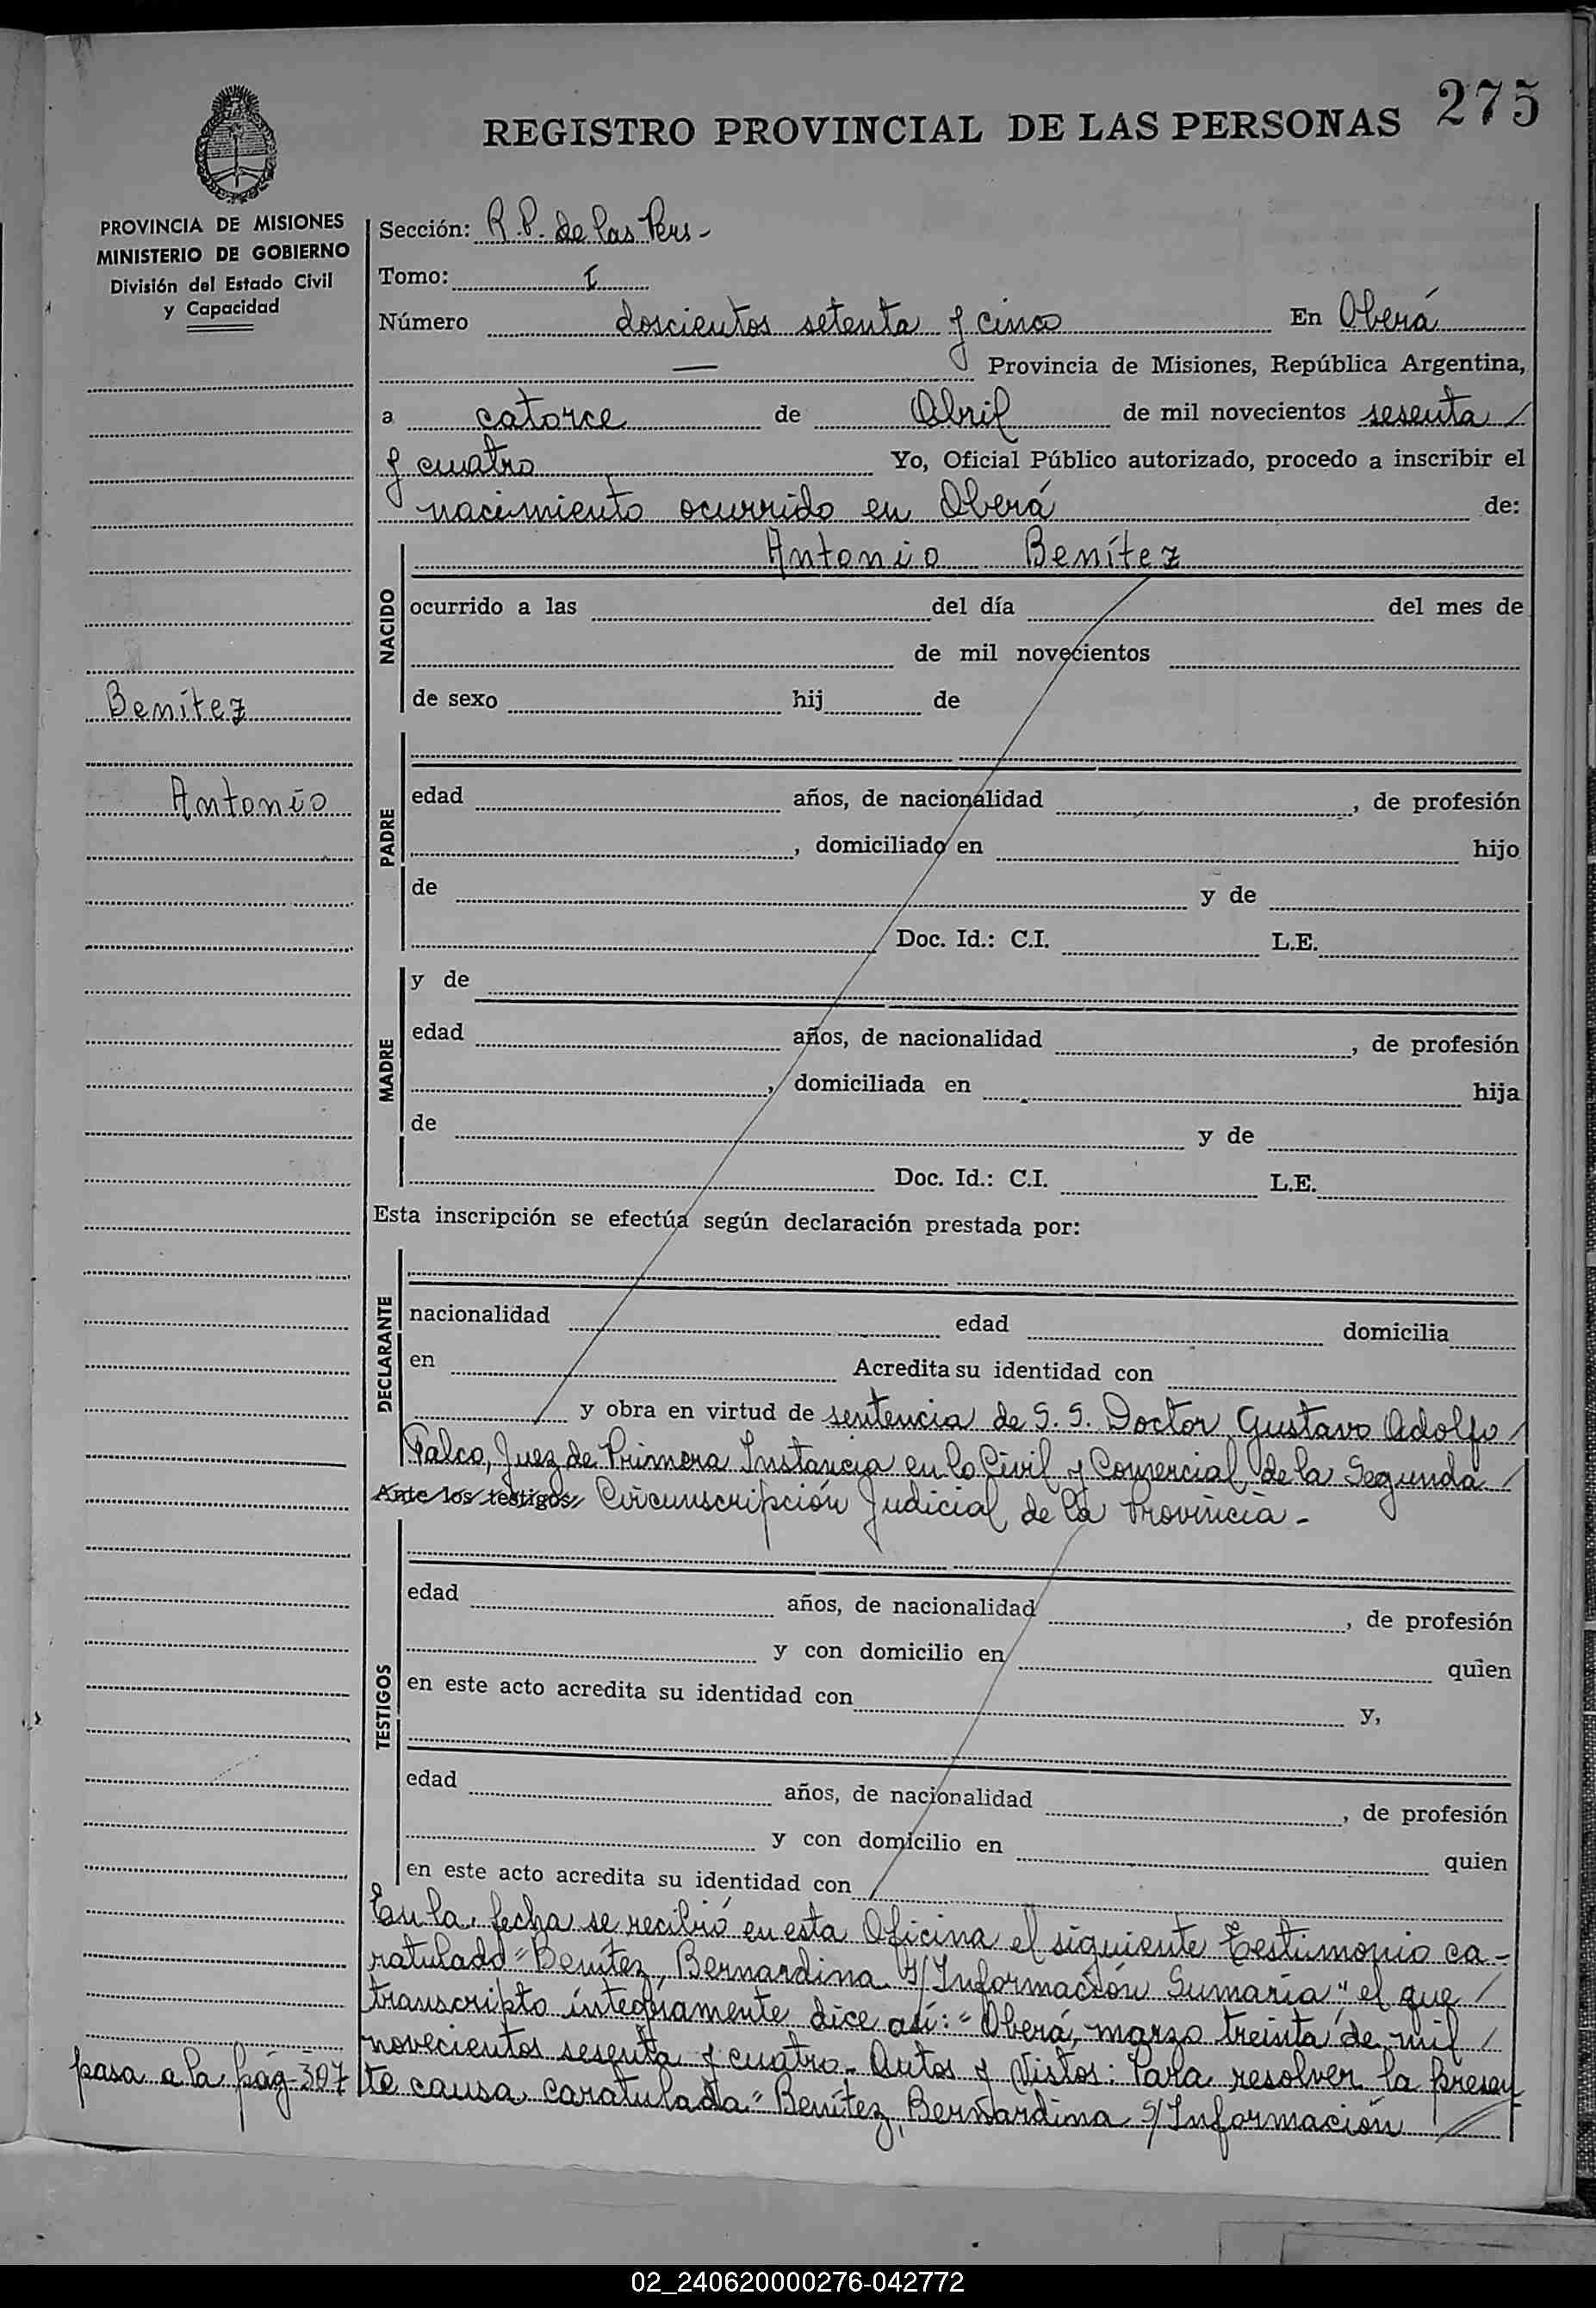 275
REGISTRO PROVINCIAL DE LAS PERSONAS
PROVINCIA DE MISIONES
MINISTERIO DE GOBIERNO
División del Estado Civil
y Capacidad
Sección: R.P. de las Pers-
Tomo: I
Número doscientos setenta y cinco En Oberá
— Provincia de Misiones, República Argentina,
a catorce de Abril de mil novecientos sesenta /
y cuatro Yo, Oficial Público autorizado, procedo a inscribir el
nacimiento ocurrido en Oberá de:
Benítez
Antonio
NACIDO
Antonio Benítez
ocurrido a las del día del mes de
de mil novecientos
de sexo hij de
PADRE
edad años, de nacionalidad , de profesión
, domiciliado en hijo
de y de
Doc. Id.: C.I. L.E.
MADRE
y de
edad años, de nacionalidad , de profesión
, domiciliada en hija
de y de
Doc. Id.: C.I. L.E.
Esta inscripción se efectúa según declaración prestada por:
DECLARANTE
nacionalidad edad domicilia
en Acredita su identidad con
y obra en virtud de sentencia de S.S. Doctor Gustavo Adolfo /
Falco, Juez de Primera Instancia en lo Civil y Comercial de la Segunda /
Ante los testigos: Circunscripción Judicial de la Provincia.-
TESTIGOS
edad años, de nacionalidad , de profesión
y con domicilio en quien
en este acto acredita su identidad con y,
edad años, de nacionalidad , de profesión
y con domicilio en quien
en este acto acredita su identidad con
En la fecha se recibió en esta Oficina el siguiente Testimonio ca-
ratulado "Benítez, Bernardina s/Información Sumaria" el que /
transcripto íntegramente dice así: "Oberá, marzo treinta de mil /
novecientos sesenta y cuatro. Autos y Vistos: Para resolver la presen
te causa caratulada "Benítez, Bernardina s/Información //
pasa a la pág-307
02_240620000276-042772